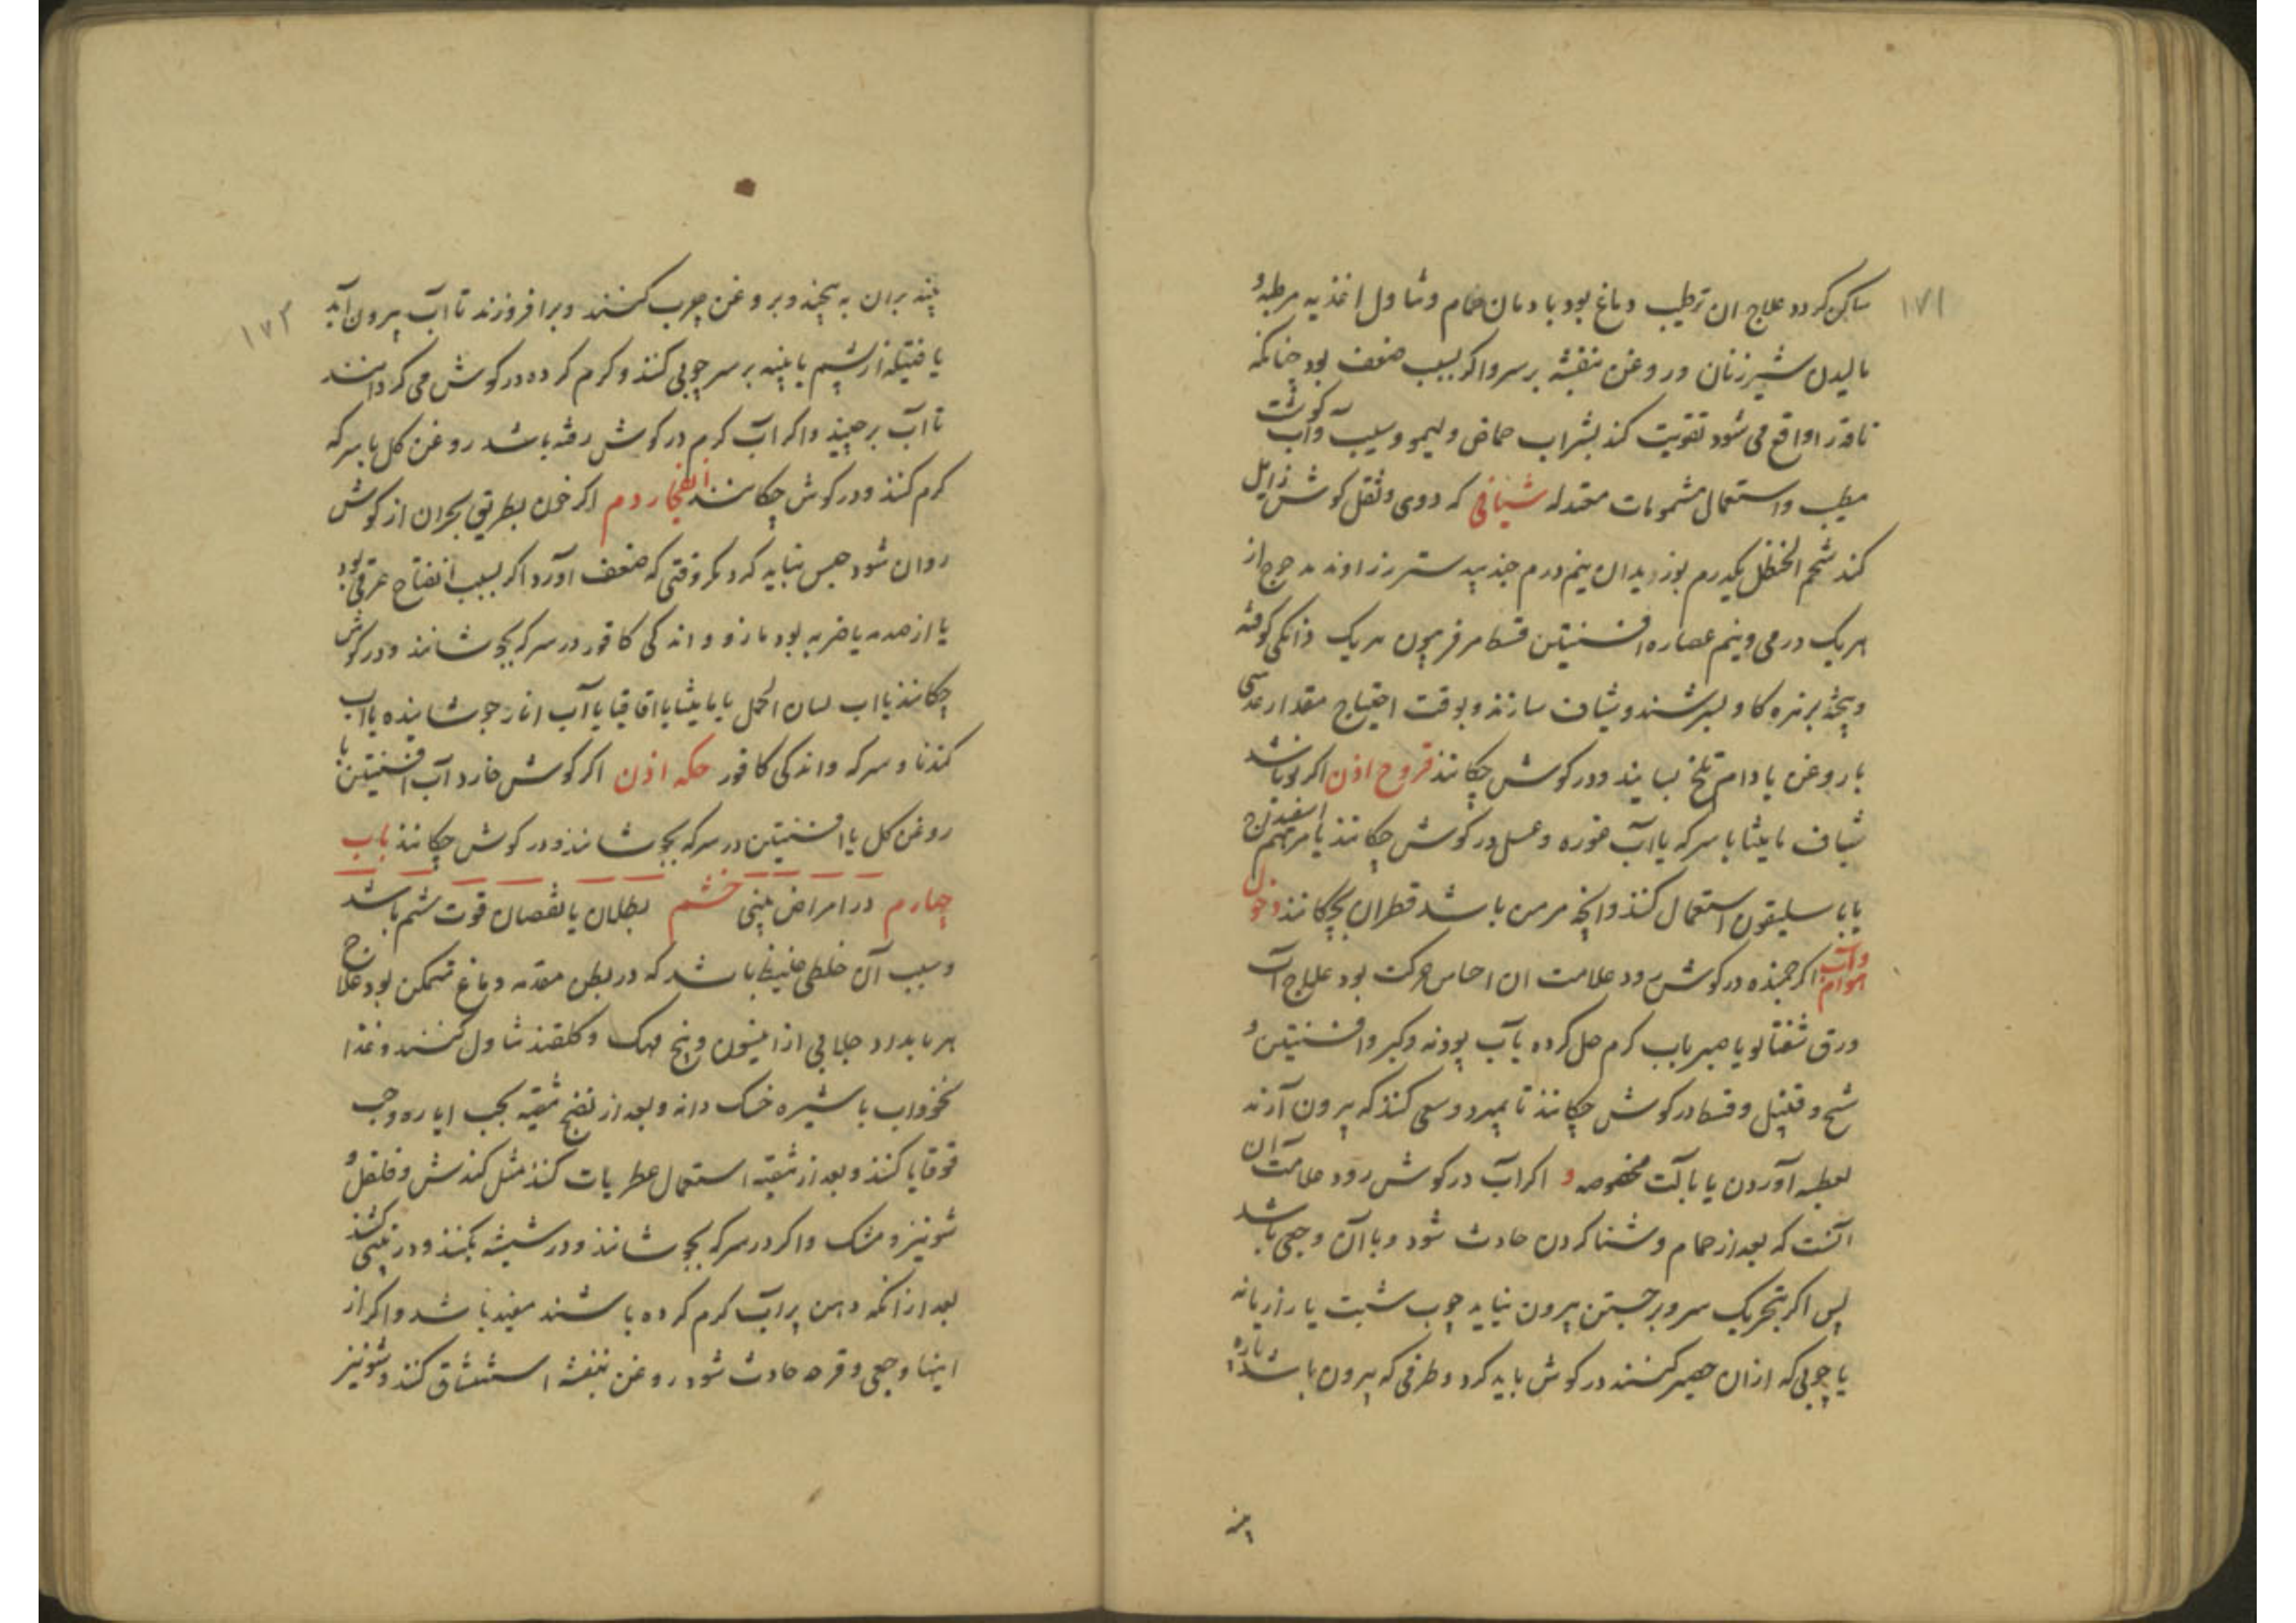 ۱۷۱
ساکن کردد علاج ان ترطیب دماغ بود بادمان حمام و تناول اغذیه مرطبه و
مالیدن شیر زنان و روغن بنفشه بر سر و اکر بسبب ضعف بود چنانکه
ناقه را واقع می شود تقویت کند بشراب حماض و لیمو و سیب و آب کوشت
مطیب و استعمال مشمومات معتدله شیافی که دوی و ثقل کوش زایل
کند شحم الحنظل یکدرم بوزیدان نیم درم جند بیدستر زراوند مدحرج از
هر یک درمی و نیم عصاره افسنتین قسط فرفیون هر یک دانکی کوفته
و بیخته بزهره کاو بسرشند و شیاف سازند و بوقت احتیاج مقدار عدسی
با روغن بادام تلخ بسایند و در کوش چکانند قروح اذن اکر نو باشد
شیاف مامیثا با سرکه یا آب غوره و عسل در کوش چکانند یا مرهم اسفیداج
یا باسلیقون استعمال کنند و انچه مزمن باشد قطران بچکانند دخول
هوام و آب اکر جمنده در کوش رود علامت ان احساس حرکت بود علاج آب
ورق شفتالو یا صبر باب کرم حل کرده یا آب پودنه و کبر و افسنتین و
شیح و قنبیل و قسط در کوش چکانند تا بمیرد و سعی کنند که بیرون آرند
بعطسه آوردن یا بآلت مخصوصه و اکر آب در کوش رود علامت آن
آنست که بعد از حمام و شنا کردن حادث شود و با آن وجعی باشد
پس اکر بتحریک سر و برجستن بیرون نیاید چوب شبت یا رازیانه
یا چوبی که ازان حصیر کنند در کوش باید کرد و طرفی که بیرون باشد پاره
پنبه
۱۷۲
پنبه بران به پیچند و بروغن چرب کنند و برافروزند تا آب بیرون آید
یا فتیله از پشم یا پنبه بر سر چوبی کنند و کرم کرده در کوش می کردانند
تا آب برچیند و اکر آب کرم در کوش رفته باشد روغن کل با سرکه
کرم کنند و در کوش چکانند انفجار دم اکر خون بطریق بحران از کوش
روان شود حبس نباید کرد مکر وقتی که ضعف آورد اکر بسبب انفتاح عرقی بود
یا از صدمه یا ضربه بود مازو و اندکی کافور در سرکه بجوشانند و در کوش
چکانند یا اب لسان الحمل یا مامیثا یا اقاقیا یا آب انار جوشانیده یا اب
کندنا و سرکه و اندکی کافور حکه اذن اکر کوش خارد آب افسنتین با
روغن کل یا افسنتین در سرکه بجوشانند و در کوش چکانند باب
چهارم در امراض بینی خشم بطلان یا نقصان قوت شم باشد
و سبب آن خلطی غلیظ باشد که در بطن مقدم دماغ متمکن بود علاج
هر بامداد جلابی از انیسون و بیخ مهک و کلقند تناول کنند و غذا
نخوداب با شیره خسک دانه و بعد از نضج تنقیه بحب ایاره و حب
قوقایا کنند و بعد از تنقیه استعمال عطریات کنند مثل کندش و فلفل و
شونیز و مشک و اکر در سرکه بجوشانند و در شیشه بکنند و در بینی کشند
بعد از انکه دهن پر آب کرم کرده باشند مفید باشد و اکر از
اینها وجعی و قرحه حادث شود روغن بنفشه استنشاق کنند و شونیز